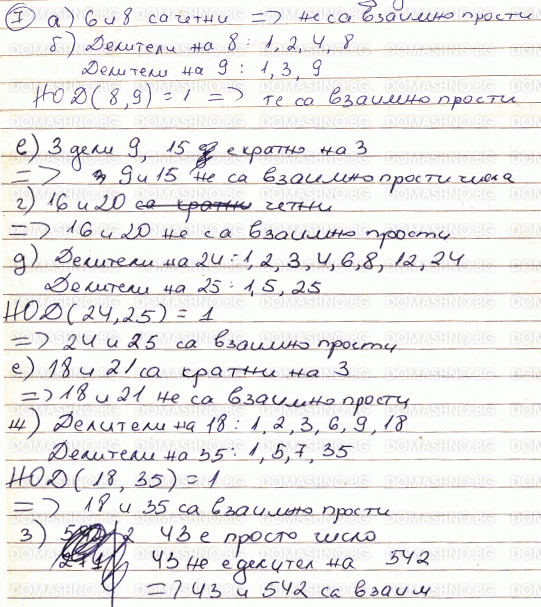 I а) 6 и 8 са четни => не са взаимно прости
б) Делители на 8 : 1, 2, 4, 8
Делители на 9 : 1, 3, 9
НОД(8,9) = 1 => те са взаимно прости
в) 3 дели 9, 15 е кратно на 3
=> 9 и 15 не са взаимно прости числа
г) 16 и 20 са кратни четни
=> 16 и 20 не са взаимно прости
д) Делители на 24 : 1, 2, 3, 4, 6, 8, 12, 24
Делители на 25 : 1, 5, 25
НОД(24,25) = 1
=> 24 и 25 са взаимно прости
е) 18 и 21 са кратни на 3
=> 18 и 21 не са взаимно прости
ж) Делители на 18 : 1, 2, 3, 6, 9, 18
Делители на 35 : 1, 5, 7, 35
НОД(18, 35) = 1
=> 18 и 35 са взаимно прости
з) 542 | 2 43 е просто число
271 43 не е делител на 542
=> 43 и 542 са взаим
DOMASHNO.BG